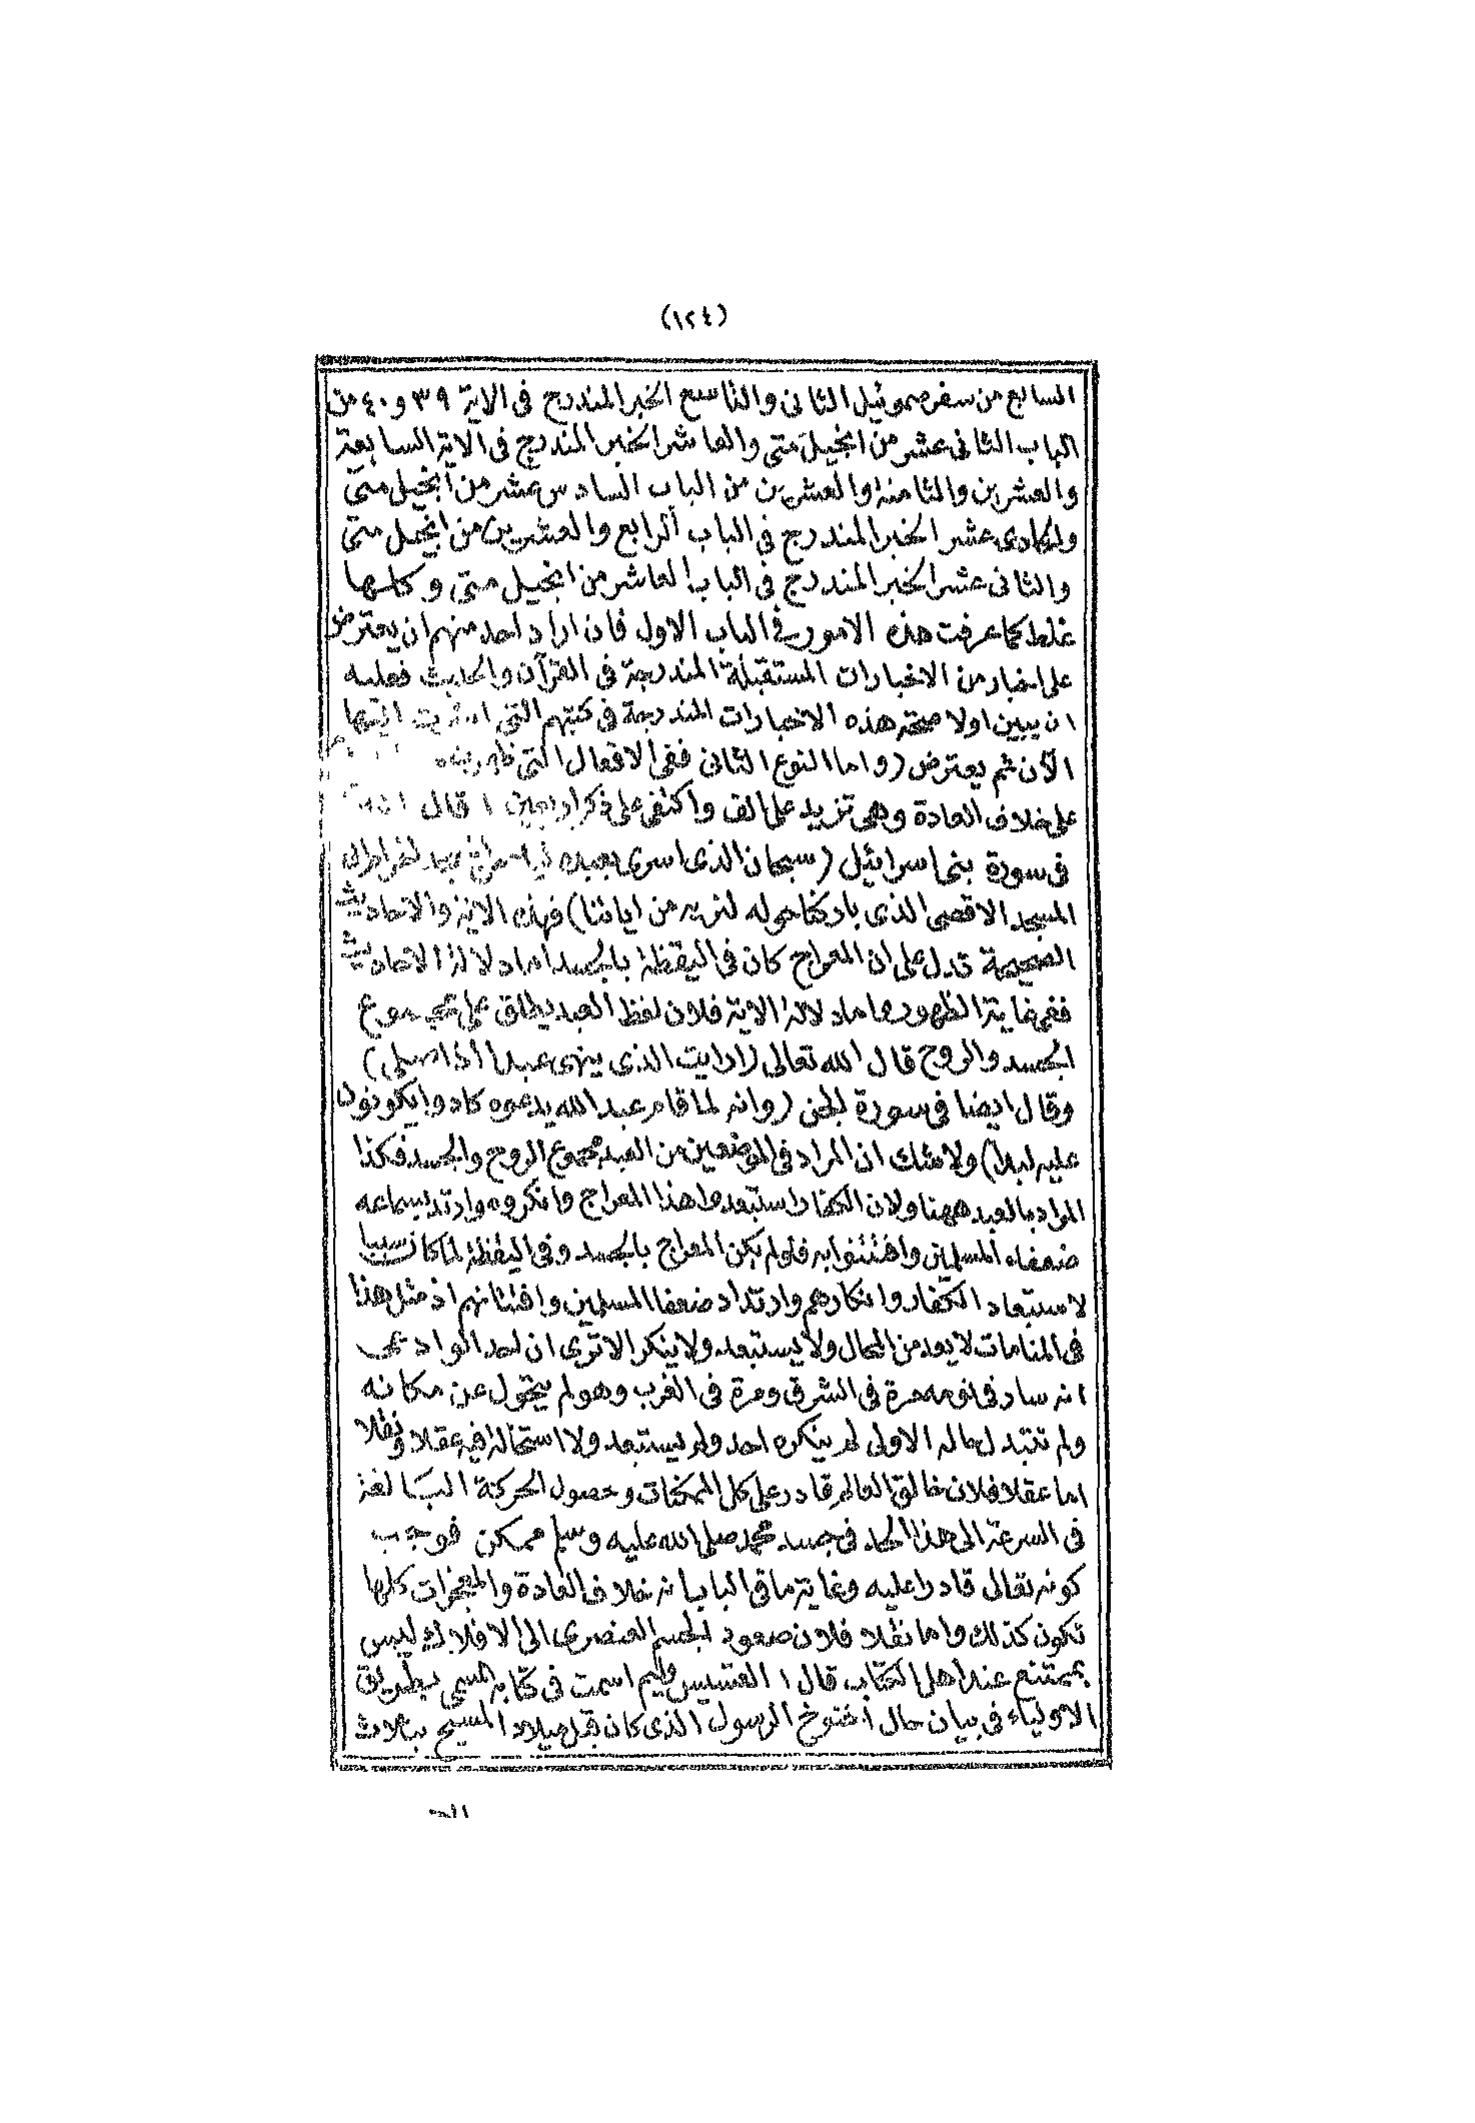 (١٢٤)
السابع من سفر صموئيل الثانى والتاسع الخبر المندرج فى الاية ٣٩ و٤٠ من
الباب الثانى عشر من انجيل متى والعاشر الخبر المندرج فى الاية السابعة
والعشرين والثامنة والعشرين من الباب السادس عشر من انجيل متى
والحادى عشر الخبر المندرج فى الباب الرابع والعشرين من انجيل متى
والثانى عشر الخبر المندرج فى الباب العاشر من انجيل متى وكلها
غلط كما عرفت هذه الامور فى الباب الاول فان اراد احد منهم ان يعترض
على اخبار من الاخبارات المستقبلة المندرجة فى القرآن والحديث فعليه
ان يبين اولا صحة هذه الاخبارات المندرجة فى كتبهم التى اشرت اليها
الآن ثم يعترض (واما النوع الثانى ففى الافعال التى ظهرت منه
على خلاف العادة وهى تزيد على الف واكتفى على ذكر اربعين ١ قال الله
فى سورة بنى اسرائيل (سبحان الذى اسرى بعبده ليلا من المسجد الحرام الى
المسجد الاقصى الذى باركنا حوله لنريه من اياتنا) فهذه الاية والاحاديث
الصحيحة تدل على ان المعراج كان فى اليقظة بالجسد اما دلالة الاحاديث
ففى غاية الظهور واما دلالة الاية فلان لفظ العبد يطلق على مجموع
الجسد والروح قال الله تعالى (ارايت الذى ينهى عبدا اذا صلى)
وقال ايضا فى سورة الجن (وانه لما قام عبد الله يدعوه كادوا يكونون
عليه لبدا) ولا شك ان المراد فى الموضعين من العبد مجموع الروح والجسد فكذا
المراد بالعبد ههنا ولان الكفار استبعدوا هذا المعراج وانكروه وارتد بسماعه
ضعفاء المسلمين وافتتنوا به فلو لم يكن المعراج بالجسد وفى اليقظة لما كان سببا
لاستبعاد الكفار وانكارهم وارتداد ضعفا المسلمين وافتتانهم اذ مثل هذا
فى المنامات لا يعد من المحال ولا يستبعد ولا ينكر الا ترى ان احدا لو ادعى
انه سار فى نومه مرة فى الشرق ومرة فى الغرب وهو لم يتحول عن مكانه
ولم تتبدل حاله الاولى لم ينكره احد ولم يستبعد ولا استحالة فيه عقلا ونقلا
اما عقلا فلان خالق العالم قادر على كل الممكنات وحصول الحركة البالغة
فى السرعة الى هذا الحد فى جسد محمد صلى الله عليه وسلم ممكن فوجب
كونه تعالى قادرا عليه وغاية ما فى الباب انه خلاف العادة والمعجزات كلها
تكون كذلك واما نقلا فلان صعود الجسم العنصرى الى الافلاك ليس
بممتنع عند اهل الكتاب قال ١ القسيس وليم اسمت فى كتابه المسمى بطريق
الاولياء فى بيان حال اخنوخ الرسول الذى كان قبل ميلاد المسيح بثلاث